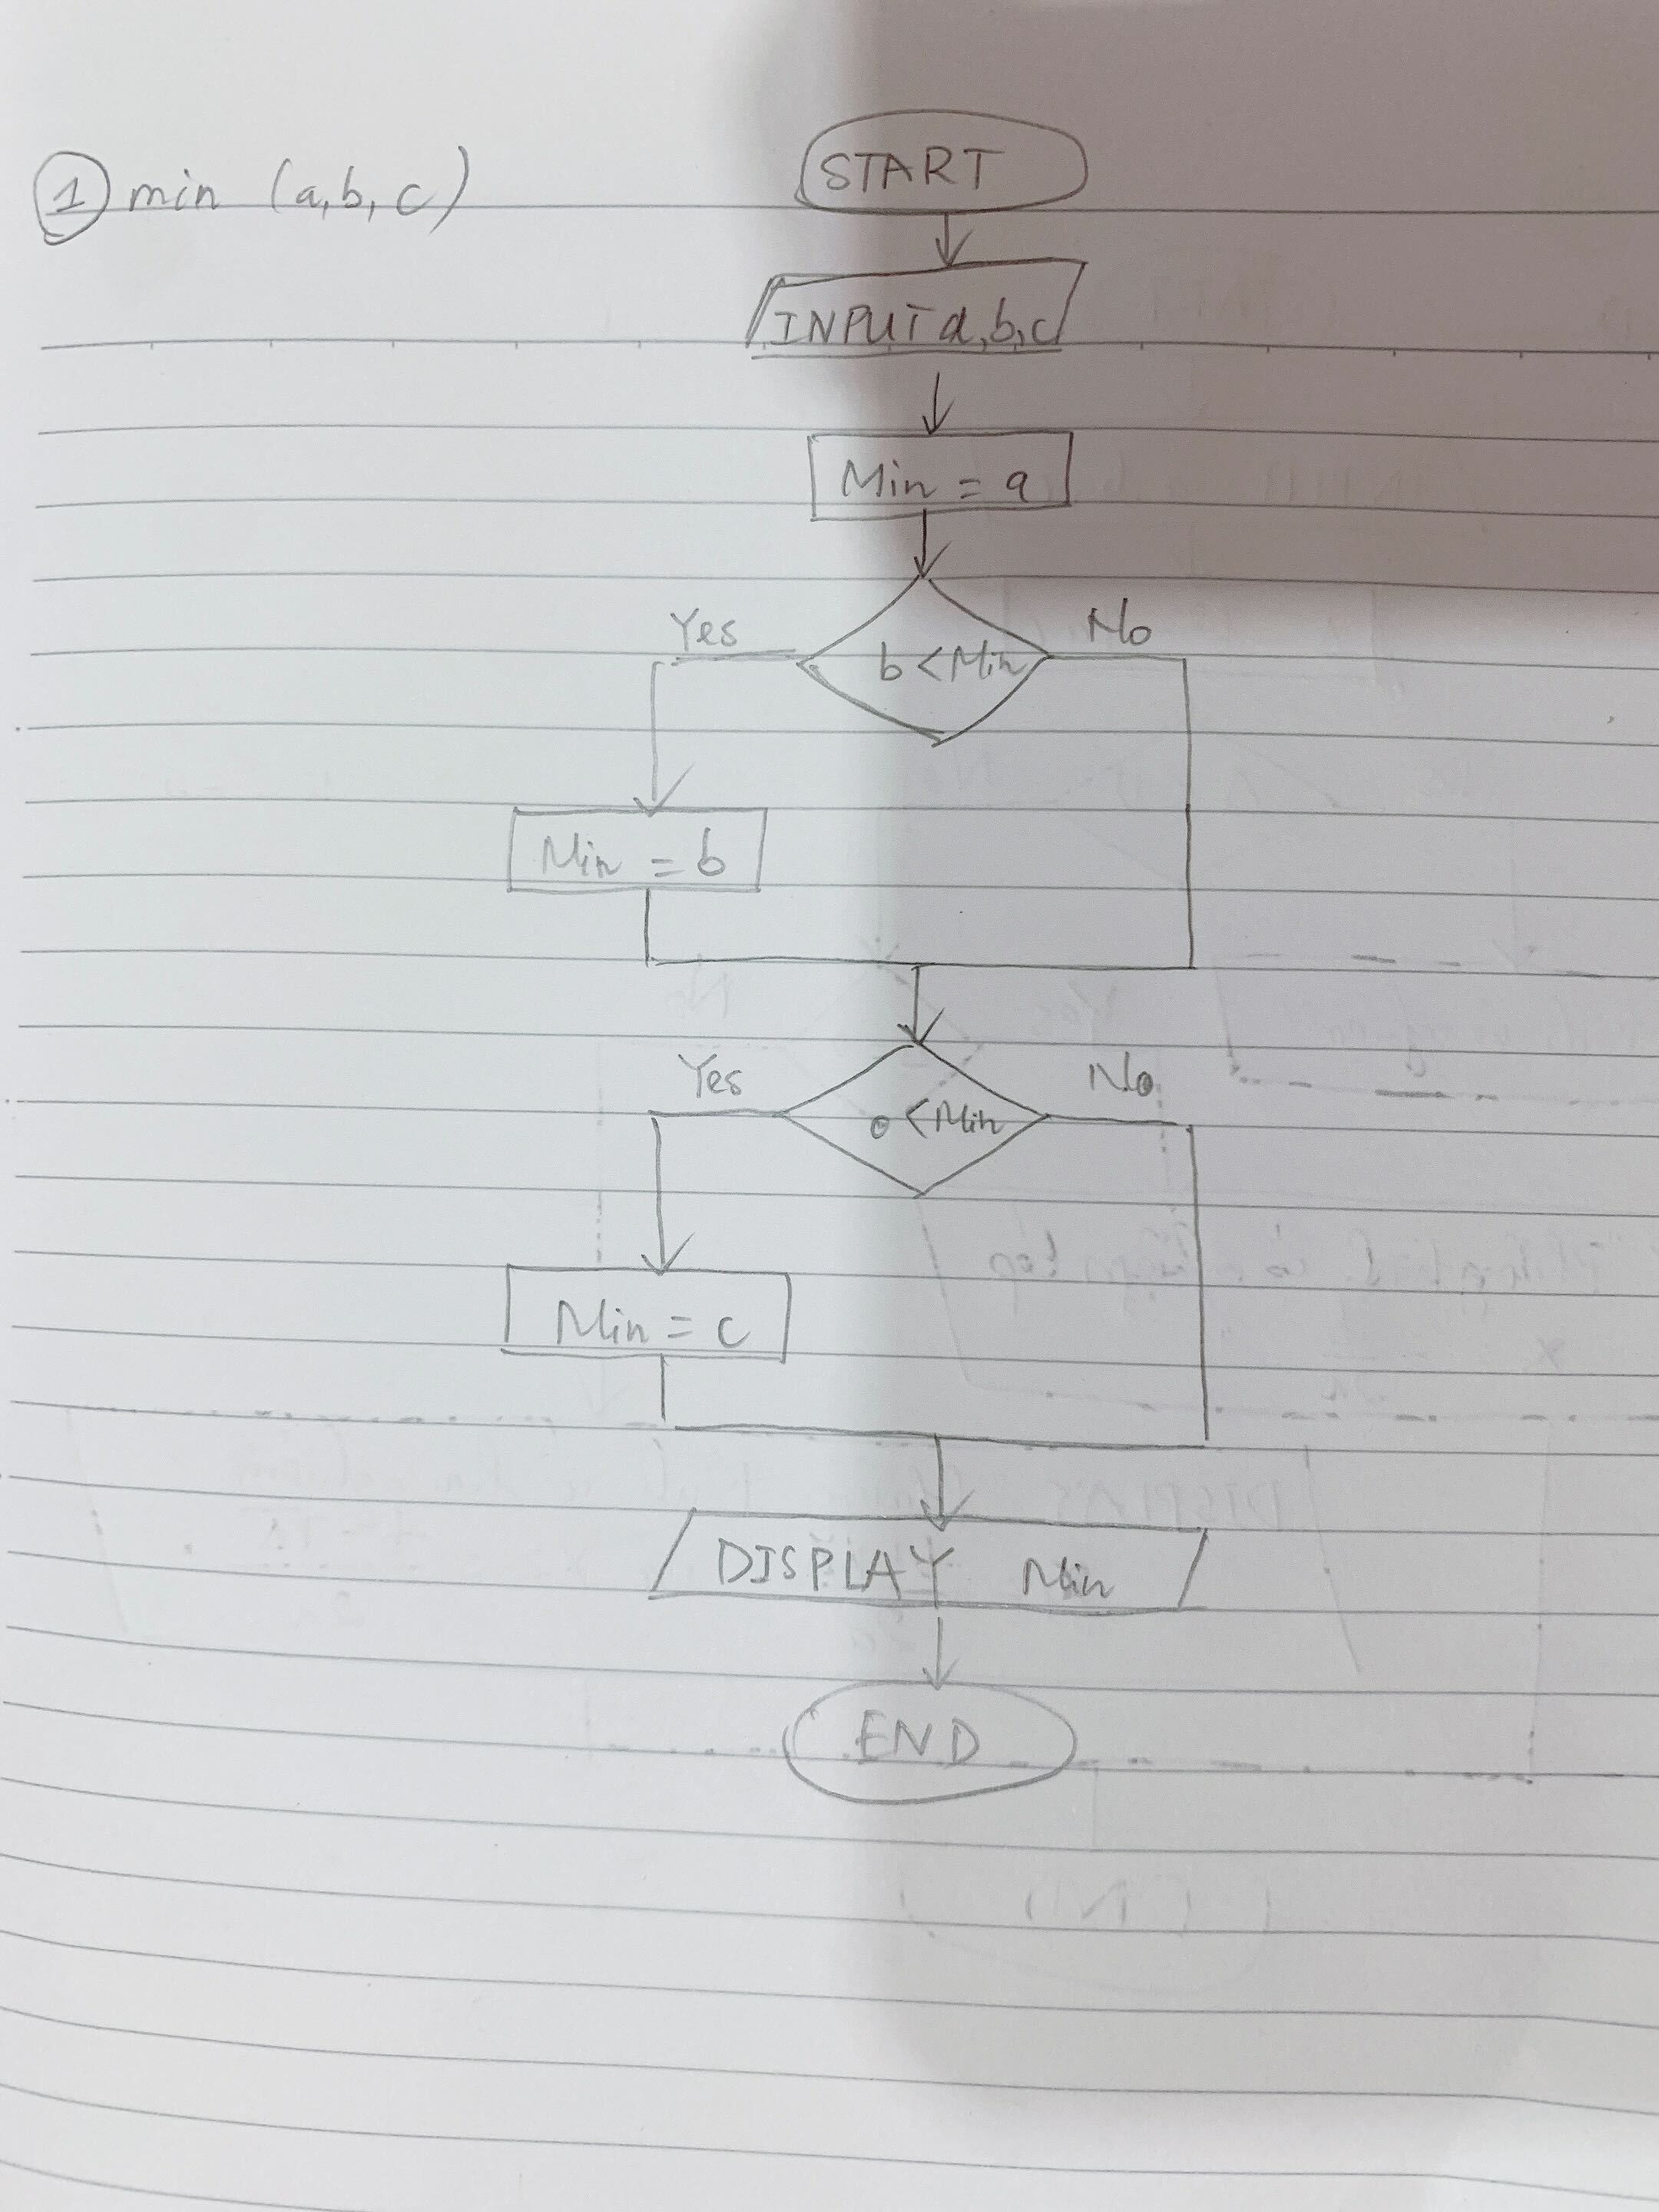 ① min (a,b,c)
START
INPUT a,b,c
Min = a
Yes
b < Min
No
Min = b
Yes
c < Min
No
Min = c
DISPLAY Min
END